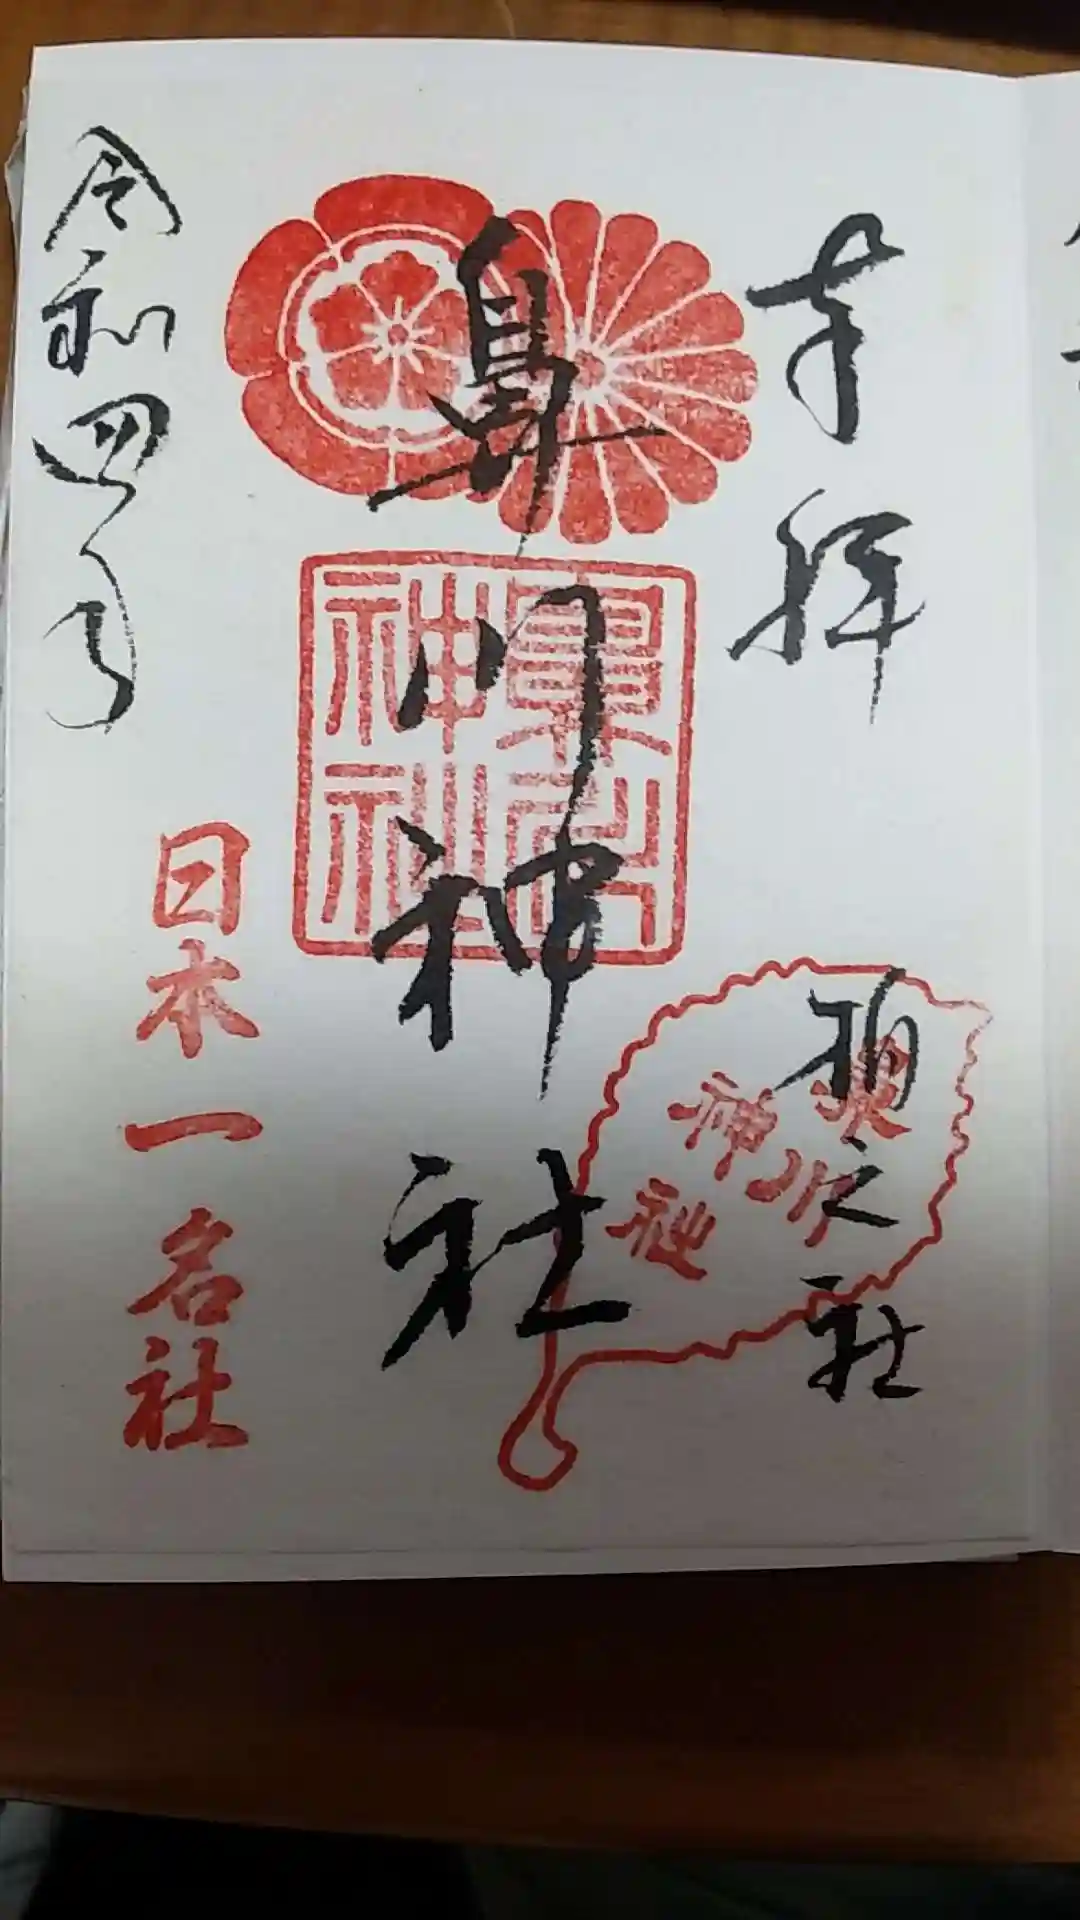 奉拝
柏之社
鼻川神社
鼻川神社
鼻川神社
令和四年
日本一名社